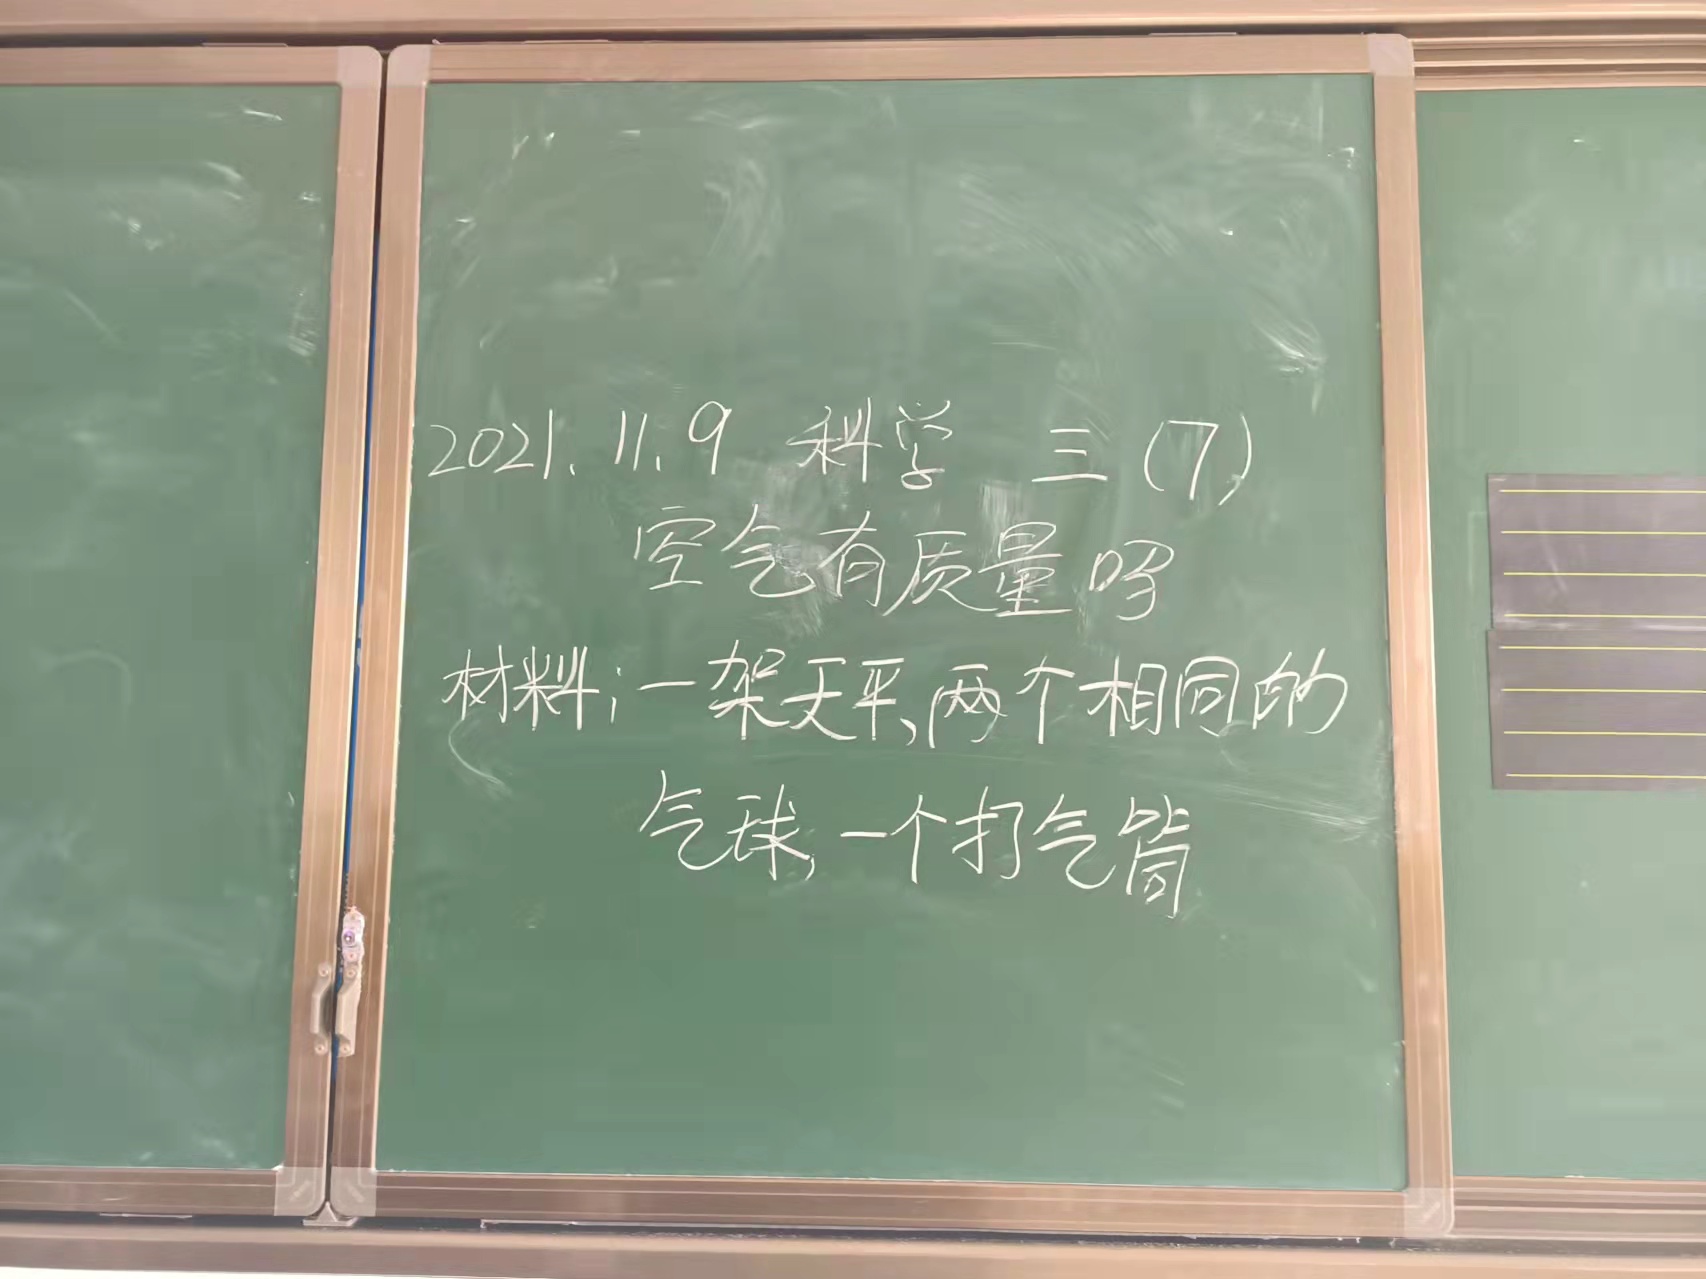 2021.11.9 科学 三(7)
空气有质量吗
材料:一架天平、两个相同的
气球、一个打气筒